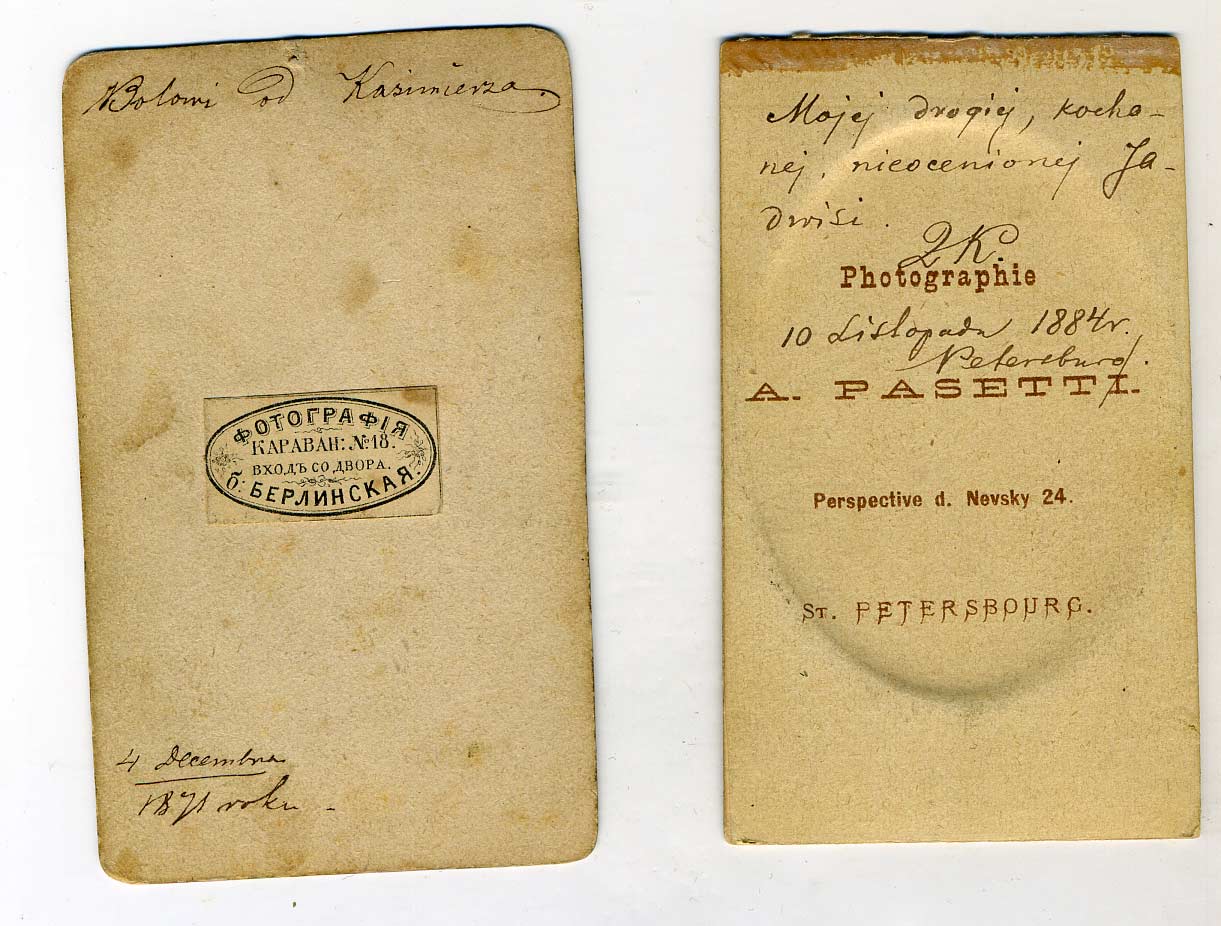 Bolowi od Kazimierza
ФОТОГРАФІЯ
КАРАВАН: №18.
ВХОДЪ СО ДВОРА.
б: БЕРЛИНСКАЯ.
4 Decembra
1871 roku -
Mojej drogiej, kocha-
nej, nieocenionej Ja-
dwisi.
Photographie
10 Listopada 1884 r.
Petersburg.
A. PASETTI.
Perspective d. Nevsky 24.
ST. PETERSBOURG.